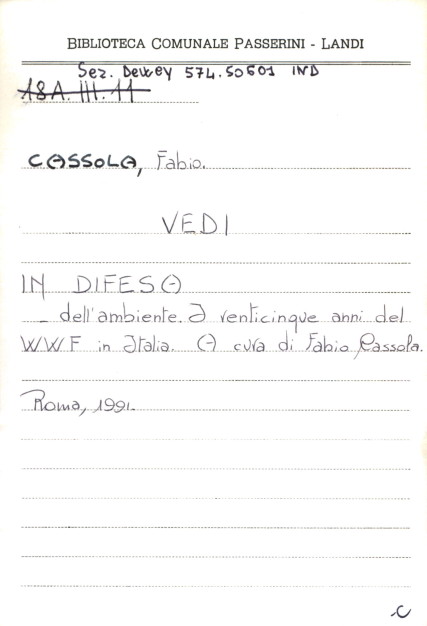 BIBLIOTECA COMUNALE PASSERINI - LANDI
Sez. Dewey 574.50601 IND
18A.III.11
CASSOLA, Fabio.
VEDI
IN DIFESA
- dell'ambiente. I venticinque anni del
WWF in Italia. A cura di Fabio Cassola.
Roma, 1991.
C